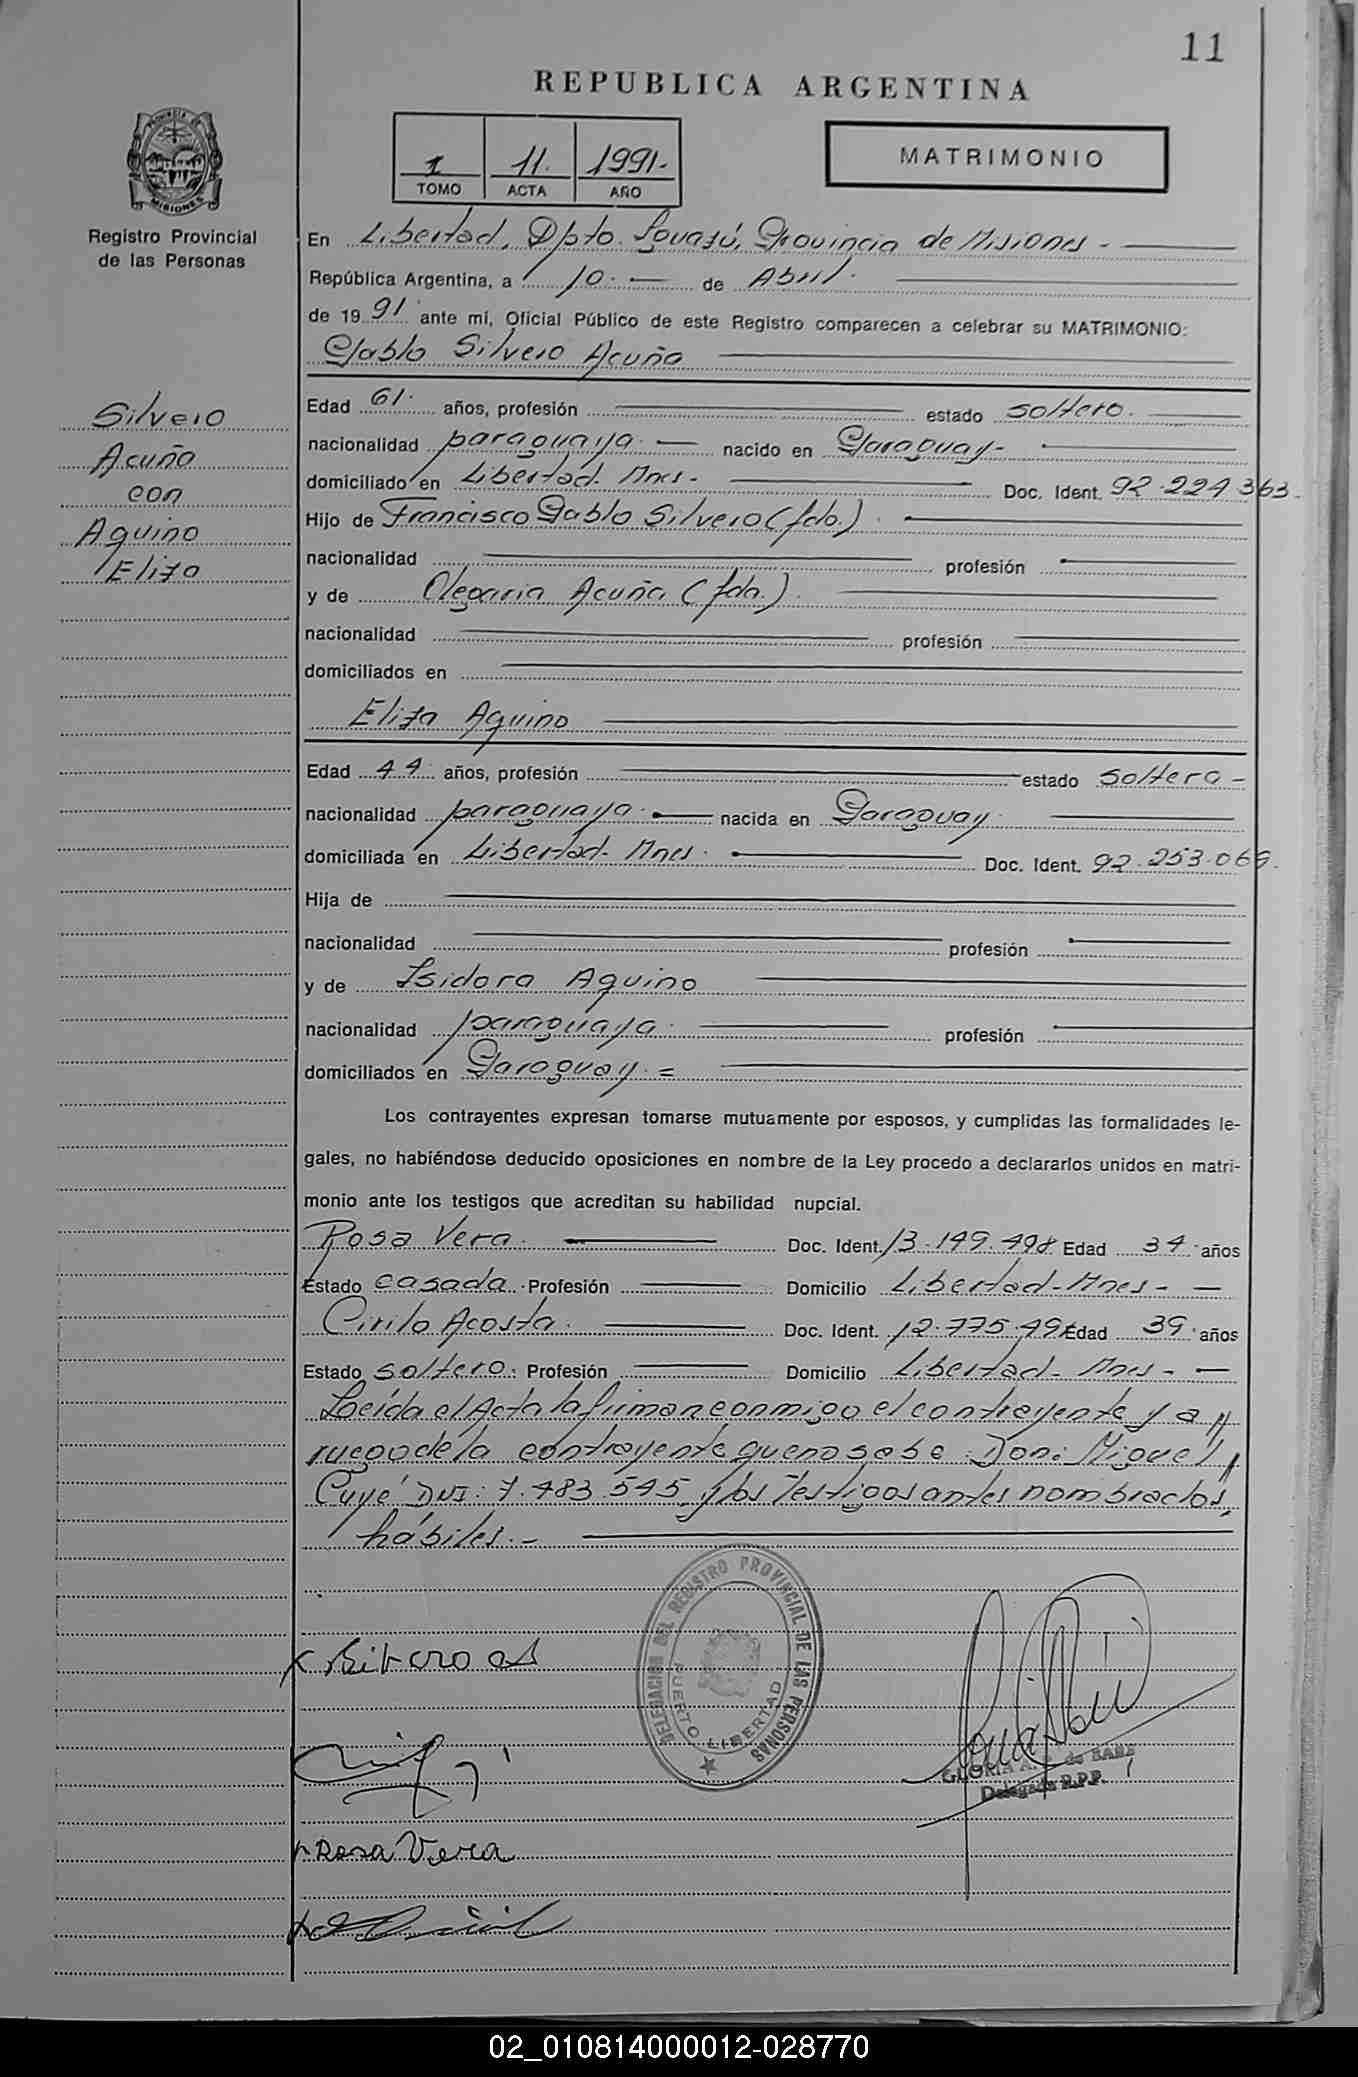 11
REPUBLICA ARGENTINA
1 11. 1991.-
TOMO ACTA AÑO
MATRIMONIO
PROVINCIA DE MISIONES
Registro Provincial
de las Personas
En Libertad, Dpto. Iguazú, Provincia de Misiones -
República Argentina, a 10. de Abril.
de 1991. ante mi, Oficial Público de este Registro comparecen a celebrar su MATRIMONIO:
Pablo Silvero Acuña
Silvero
Acuña
con
Aquino
Eliza
Edad 61. años, profesión estado soltero.
nacionalidad paraguaya. nacido en Paraguay-
domiciliado en Libertad. Mnes- Doc. Ident. 92.224.363.
Hijo de Francisco Pablo Silvero (fdo.).
nacionalidad profesión
y de Olegaria Acuña (fda.).
nacionalidad profesión
domiciliados en
Eliza Aquino
Edad 44 años, profesión estado soltera-
nacionalidad paraguaya. nacida en Paraguay.
domiciliada en Libertad- Mnes. Doc. Ident. 92.253.069.
Hija de
nacionalidad profesión
y de Isidora Aquino
nacionalidad paraguaya. profesión
domiciliados en Paraguay.=
Los contrayentes expresan tomarse mutuamente por esposos, y cumplidas las formalidades le-
gales, no habiéndose deducido oposiciones en nombre de la Ley procedo a declararlos unidos en matri-
monio ante los testigos que acreditan su habilidad nupcial.
Rosa Vera. Doc. Ident. 13.149.498. Edad 34. años
Estado casada. Profesión Domicilio Libertad-Mnes-
Cirilo Acosta. Doc. Ident. 12.775.49 Edad 39. años
Estado soltero. Profesión Domicilio Libertad- Mnes-
Leída el Acta la firman conmigo el contrayente y a
ruego de la contrayente que no sabe: Don: Miguel
Cuyé DNI: 7.483.545 y los Testigos antes nombrados,
hábiles.-
DELEGACION DEL REGISTRO PROVINCIAL DE LAS PERSONAS
PUERTO LIBERTAD
GLORIA de SAEZ
Delegada R.P.P.
Rosa Vera
02_010814000012-028770